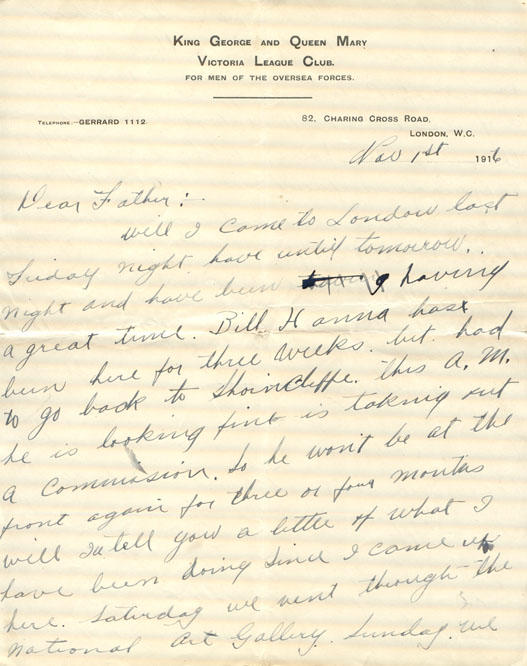 KING GEORGE AND QUEEN MARY
VICTORIA LEAGUE CLUB.
FOR MEN OF THE OVERSEA FORCES.
TELEPHONE:—GERRARD 1112.
82, CHARING CROSS ROAD,
LONDON, W.C.
Nov 1st 1916
Dear Father:-
will I came to London last
Friday night have until tomorrow
night and have been having
a great time. Bill Hanna has
been here for three weeks. but had
to go back to Shorncliffe. this A.M.
he is looking fine is taking out
a Commission. So he won't be at the
front again for three or four months
will I tell you a little of what I
have been doing since I came up
here. Saturday we went through the
national Art Gallery. Sunday. we